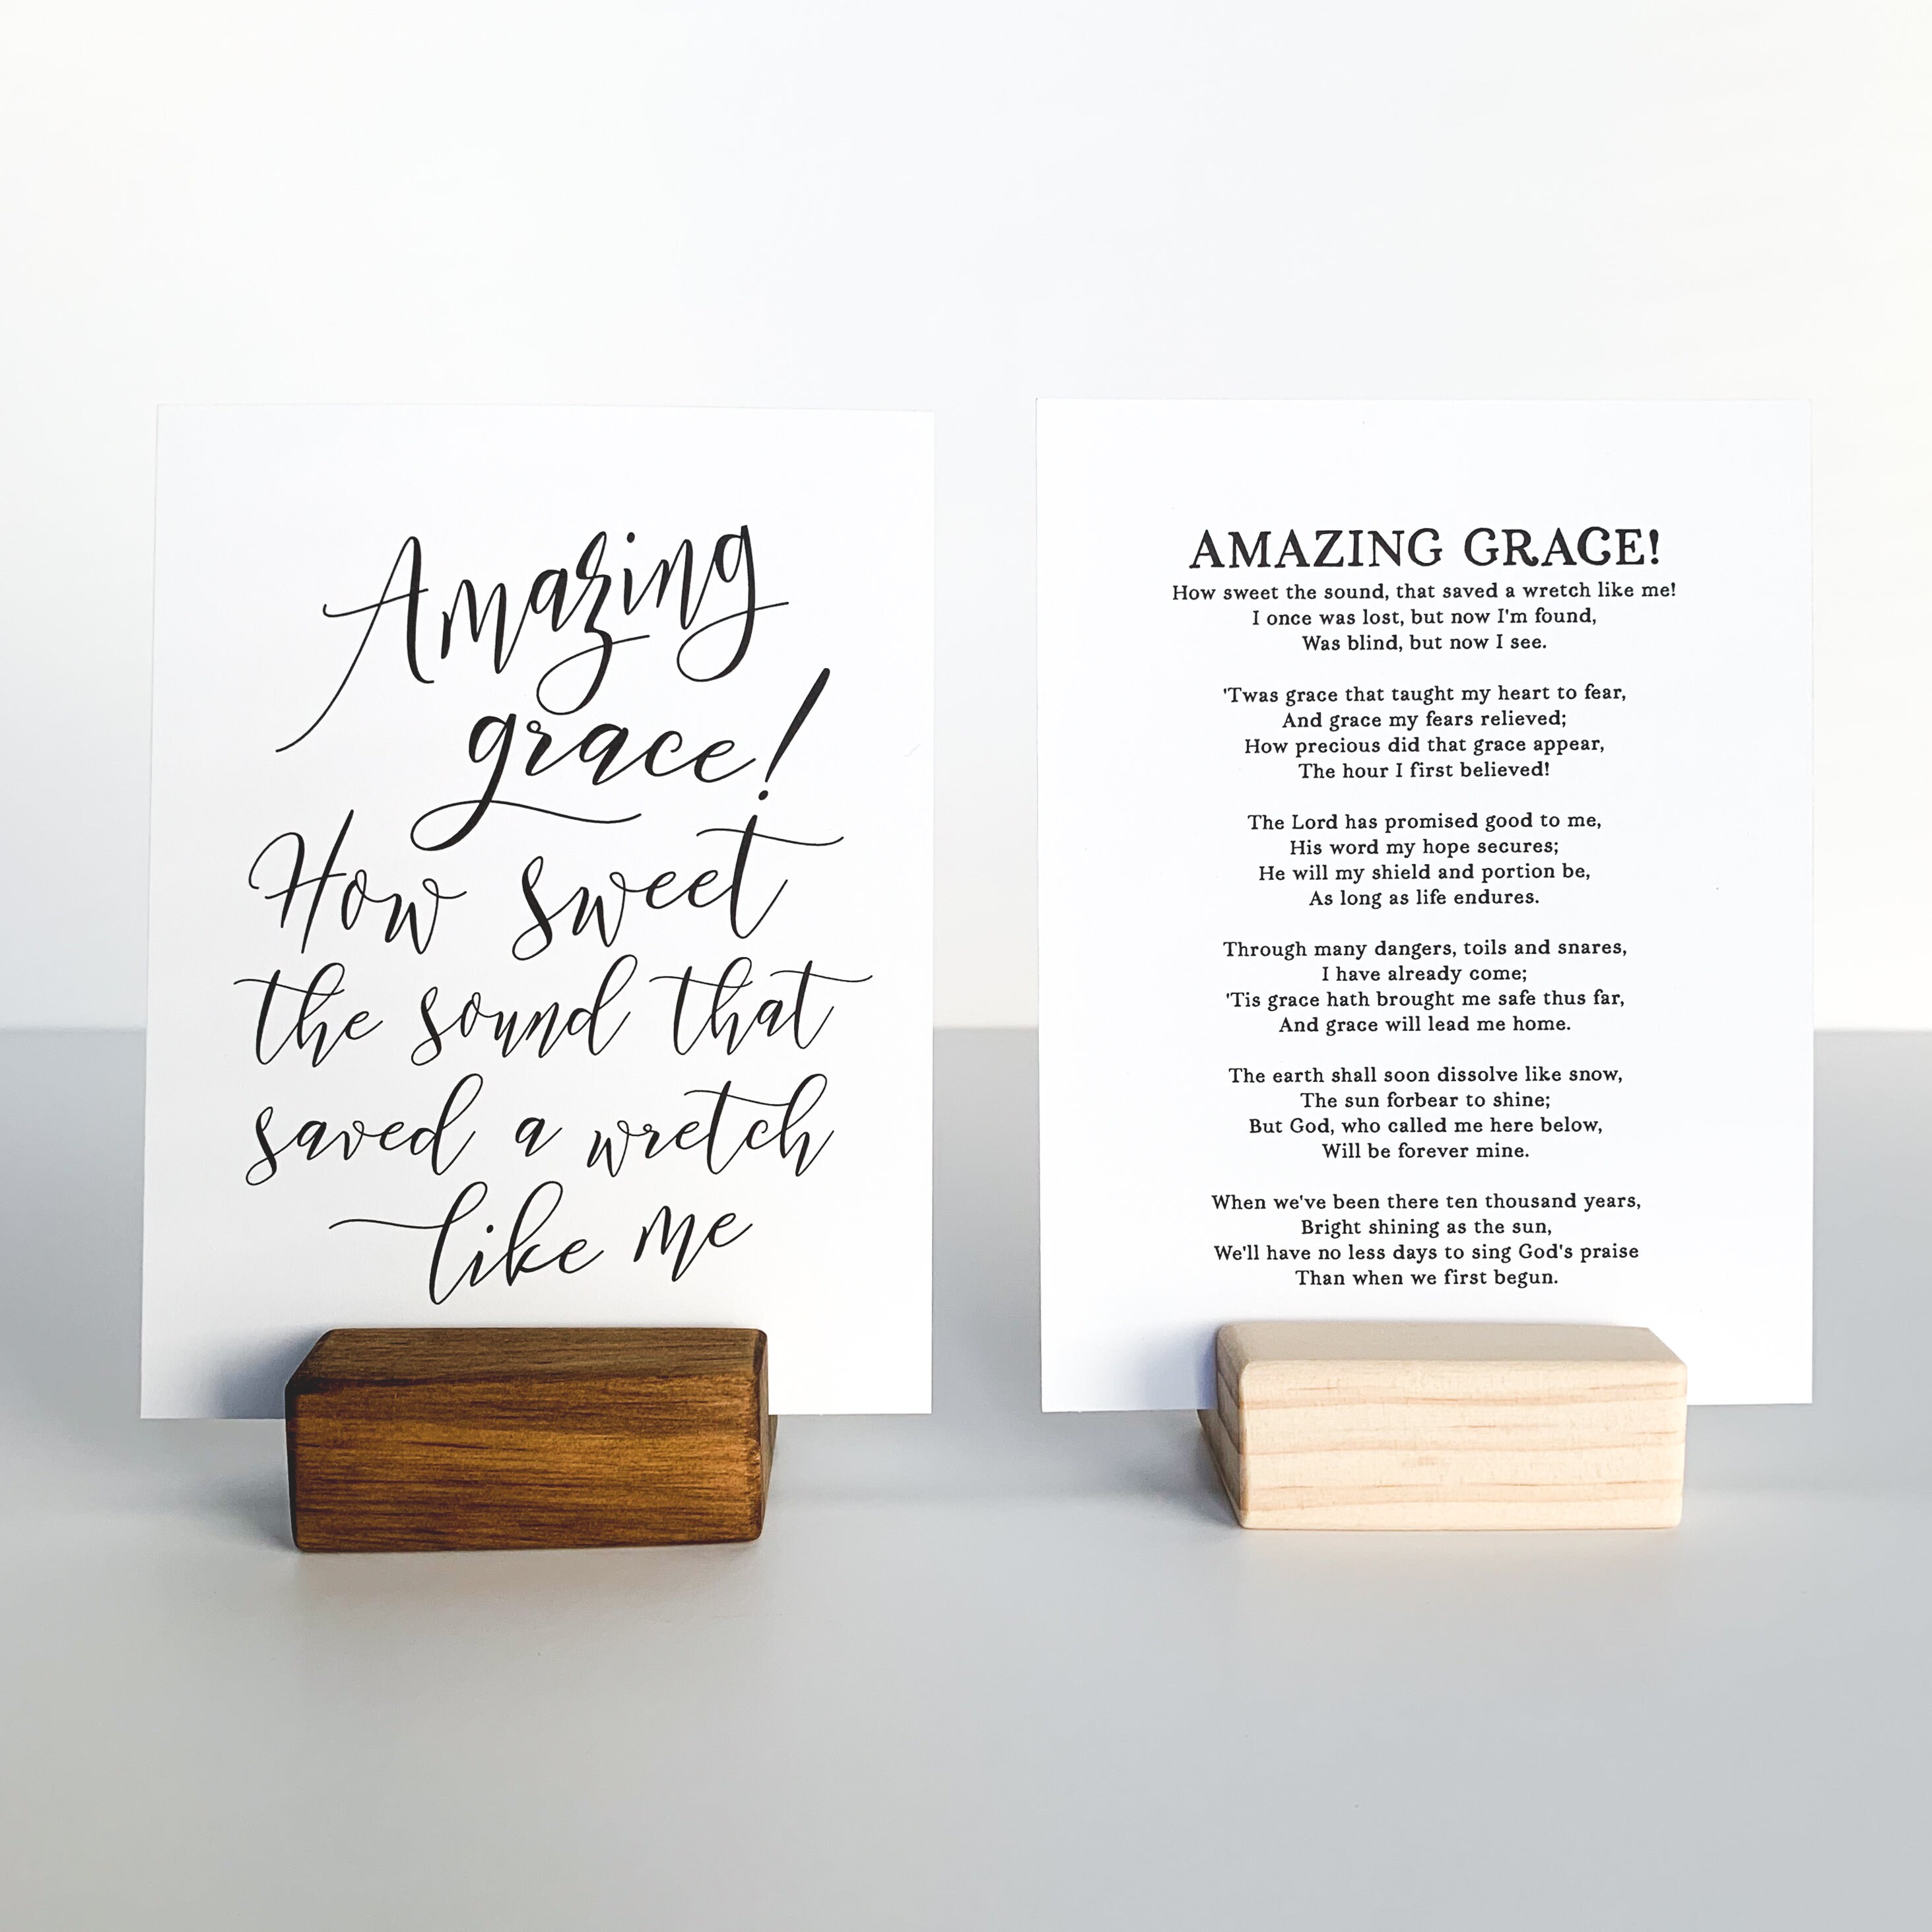 Amazing
grace!
How sweet
the sound that
saved a wretch
like me
AMAZING GRACE!
How sweet the sound, that saved a wretch like me!
I once was lost, but now I'm found,
Was blind, but now I see.
'Twas grace that taught my heart to fear,
And grace my fears relieved;
How precious did that grace appear,
The hour I first believed!
The Lord has promised good to me,
His word my hope secures;
He will my shield and portion be,
As long as life endures.
Through many dangers, toils and snares,
I have already come;
'Tis grace hath brought me safe thus far,
And grace will lead me home.
The earth shall soon dissolve like snow,
The sun forbear to shine;
But God, who called me here below,
Will be forever mine.
When we've been there ten thousand years,
Bright shining as the sun,
We'll have no less days to sing God's praise
Than when we first begun.